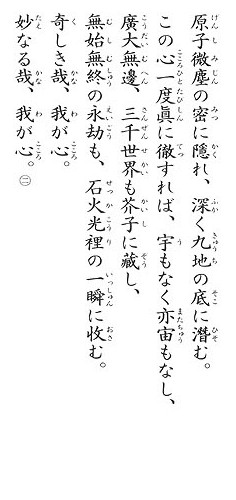 原子微塵の密に隠れ、深く九地の底に潜む。
この心一度眞に徹すれば、宇もなく亦宙もなし、
廣大無邊、三千世界も芥子に藏し、
無始無終の永劫も、石火光裡の一瞬に收む。
奇しき哉、我が心。
妙なる哉、我が心。㊁